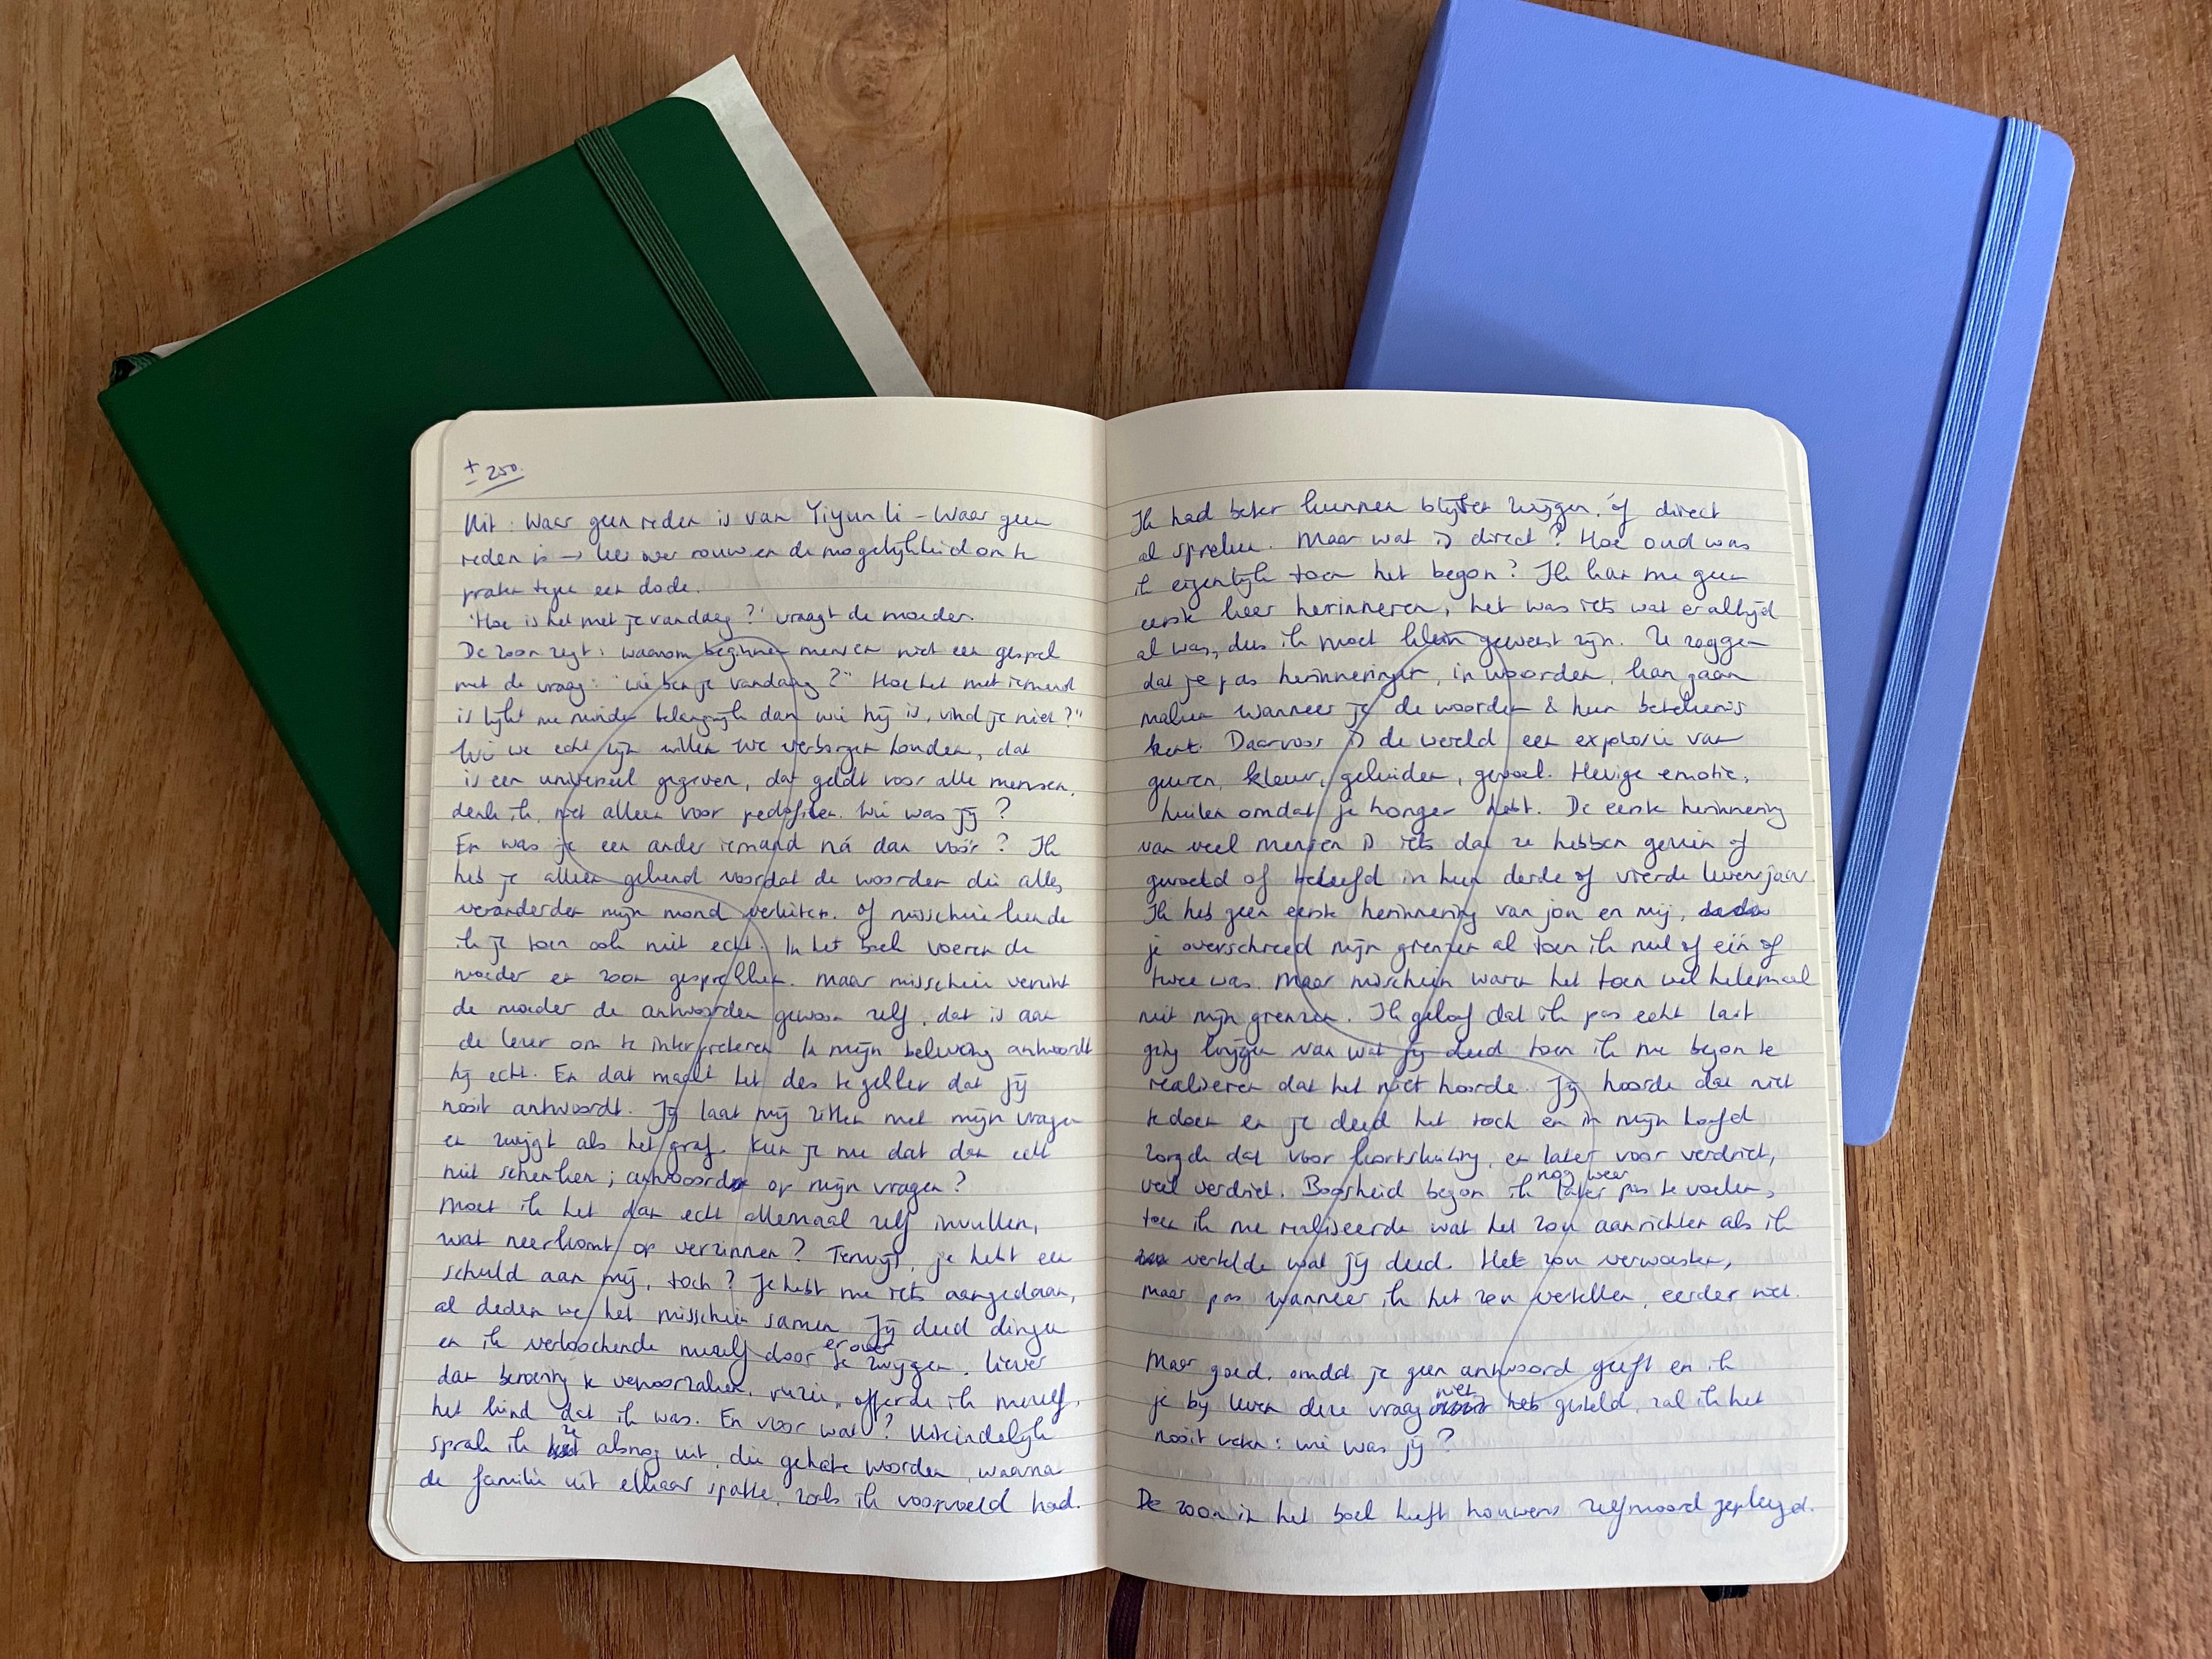 ± 250.
Uit: Waar geen reden is van Yiyun Li - Waar geen
reden is → lees over rouw en de mogelijkheid om te
praten tegen een dode.
'Hoe is het met je vandaag?' vraagt de moeder.
De zoon zegt: waarom beginnen mensen niet een gesprek
met de vraag: "wie ben je vandaag?" Hoe het met iemand
is lijkt me minder belangrijk dan wie hij is, vind je niet?"
Wie we echt zijn willen we verborgen houden, dat
is een universeel gegeven, dat geldt voor alle mensen,
denk ik, niet alleen voor pedofielen. Wie was jij?
En was je een ander iemand ná dan voor? Ik
heb je alleen gekend voordat de woorden die alles
veranderden mijn mond verlieten. Of misschien kende
ik je toen ook niet echt. In het boek voeren de
moeder en zoon gesprekken. Maar misschien verzint
de moeder de antwoorden gewoon zelf, dat is aan
de lezer om te interpreteren. In mijn beleving antwoordt
hij echt. En dat maakt het des te gekker dat jij
nooit antwoordt. Jij laat mij zitten met mijn vragen
en zwijgt als het graf. Kun je me dat dan echt
niet schenken; antwoord op mijn vragen?
Moet ik het dan echt allemaal zelf invullen,
wat neerkomt op verzinnen? Terwijl, je hebt een
schuld aan mij, toch? Je hebt me iets aangedaan,
al deden we het misschien samen. Jij deed dingen
en ik verloochende mezelf door erover te zwijgen. Liever
dan beroering te veroorzaken, ruzie, offerde ik mezelf,
het kind dat ik was. En voor wat? Uiteindelijk
sprak ik ze alsnog uit, die gehate woorden, waarna
de familie uit elkaar spatte, zoals ik voorvoeld had.
Ik had beter kunnen blijven zwijgen, óf direct
al spreken. Maar wat is direct? Hoe oud was
ik eigenlijk toen het begon? Ik kan me geen
eerste keer herinneren, het was iets wat er altijd
al was, dus ik moet klein geweest zijn. Ze zeggen
dat je pas herinneringen, in woorden, kan gaan
maken wanneer je de woorden & hun betekenis
kent. Daarvoor is de wereld een explosie van
geuren, kleur, geluiden, gevoel. Hevige emotie,
huilen omdat je honger hebt. De eerste herinnering
van veel mensen is iets dat ze hebben gezien of
gevoeld of beleefd in hun derde of vierde levensjaar.
Ik heb geen eerste herinnering van jou en mij,
je overschreed mijn grenzen al toen ik nul of één of
twee was. Maar misschien waren het toen wel helemaal
niet mijn grenzen. Ik geloof dat ik pas echt last
ging krijgen van wat jij deed toen ik me begon te
realiseren dat het niet hoorde. Jij hoorde dat niet
te doen en je deed het toch en in mijn hoofd
zorgde dat voor kortsluiting, en later voor verdriet,
veel verdriet. Boosheid begon ik nog weer later pas te voelen,
toen ik me realiseerde wat het zou aanrichten als ik
vertelde wat jij deed. Het zou verwoesten,
maar pas wanneer ik het zou vertellen, eerder niet.
Maar goed, omdat je geen antwoord geeft en ik
je bij leven deze vraag niet heb gesteld, zal ik het
nooit weten: wie was jij?
De zoon in het boek heeft trouwens zelfmoord gepleegd.